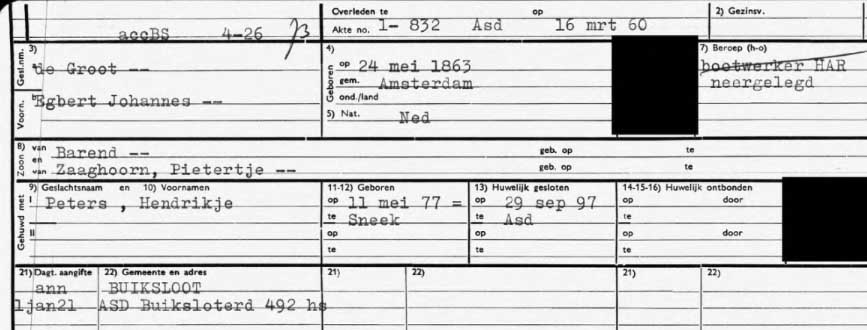 Overleden te op 2) Gezinsv.
accBS 4-26 Akte no. 1- 832 Asd 16 mrt 60
3) 4) 7) Beroep (h-o)
Gesl.nm. a de Groot -- Geboren op 24 mei 1863 bootwerker HAR
gem. Amsterdam neergelegd
Voorn. b Egbert Johannes -- ond./land
5) Nat. Ned
8) Zoon van Barend -- geb. op te
en van Zaaghoorn, Pietertje -- geb. op te
9) Geslachtsnaam en 10) Voornamen 11-12) Geboren 13) Huwelijk gesloten 14-15-16) Huwelijk ontbonden
Gehuwd met I Peters , Hendrikje op 11 mei 77 = op 29 sep 97 op door
te Sneek te Asd te
II op op op door
te te te
21) Dagt. aangifte 22) Gemeente en adres 21) 22) 21) 22)
ann BUIKSLOOT
1jan21 ASD Buiksloterd 492 hs